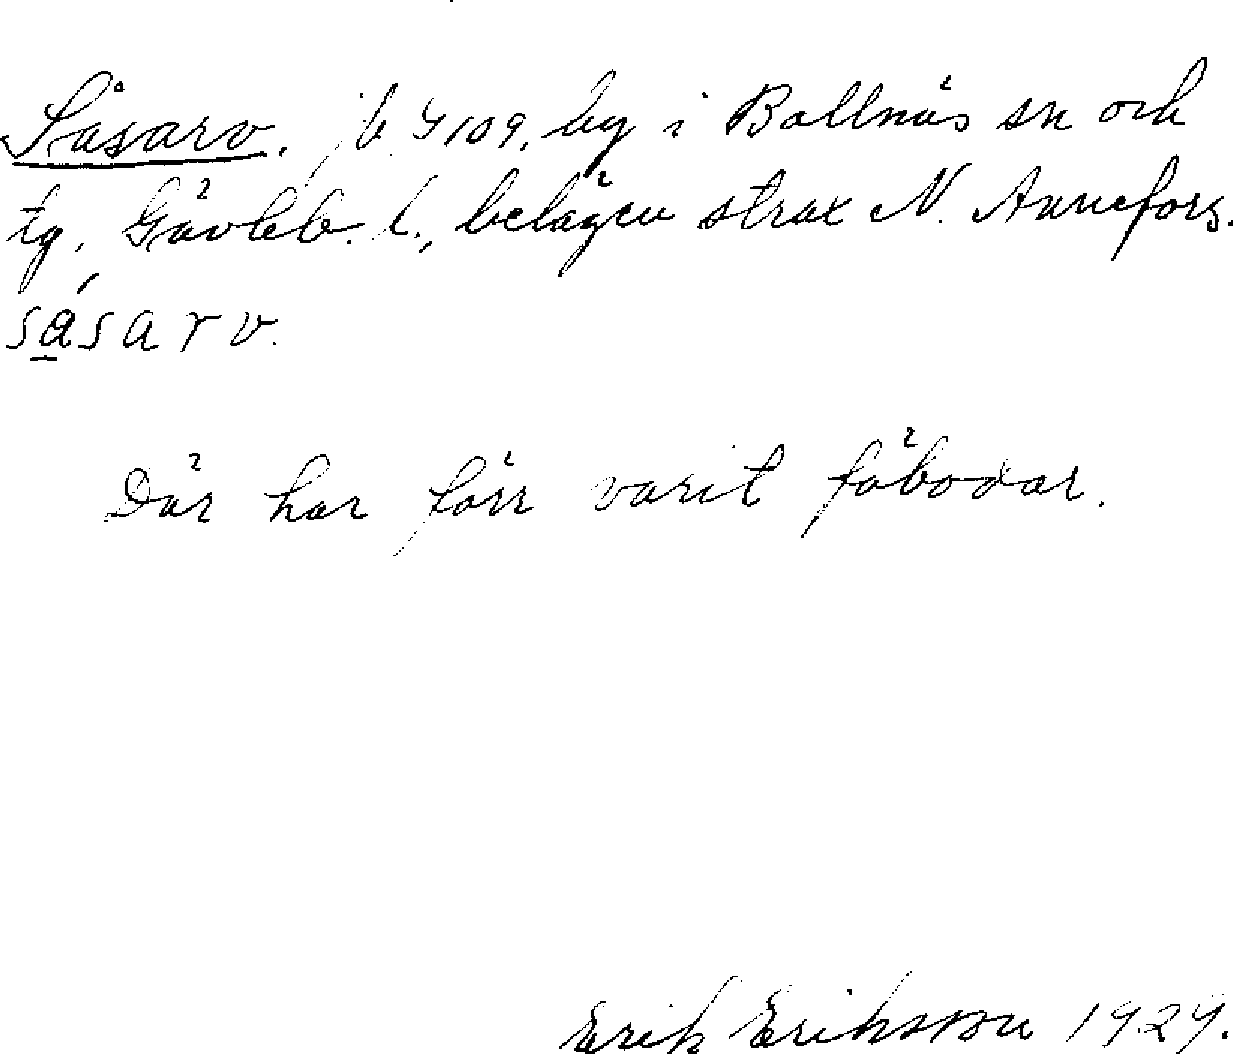 Såsarv. jb. 4109, by i Bollnäs sn och
tg, Gävleb. l., belägen strax N. Annefors.
såsarv.
Där har förr varit fäbodar.
Erik Eriksson 1929.